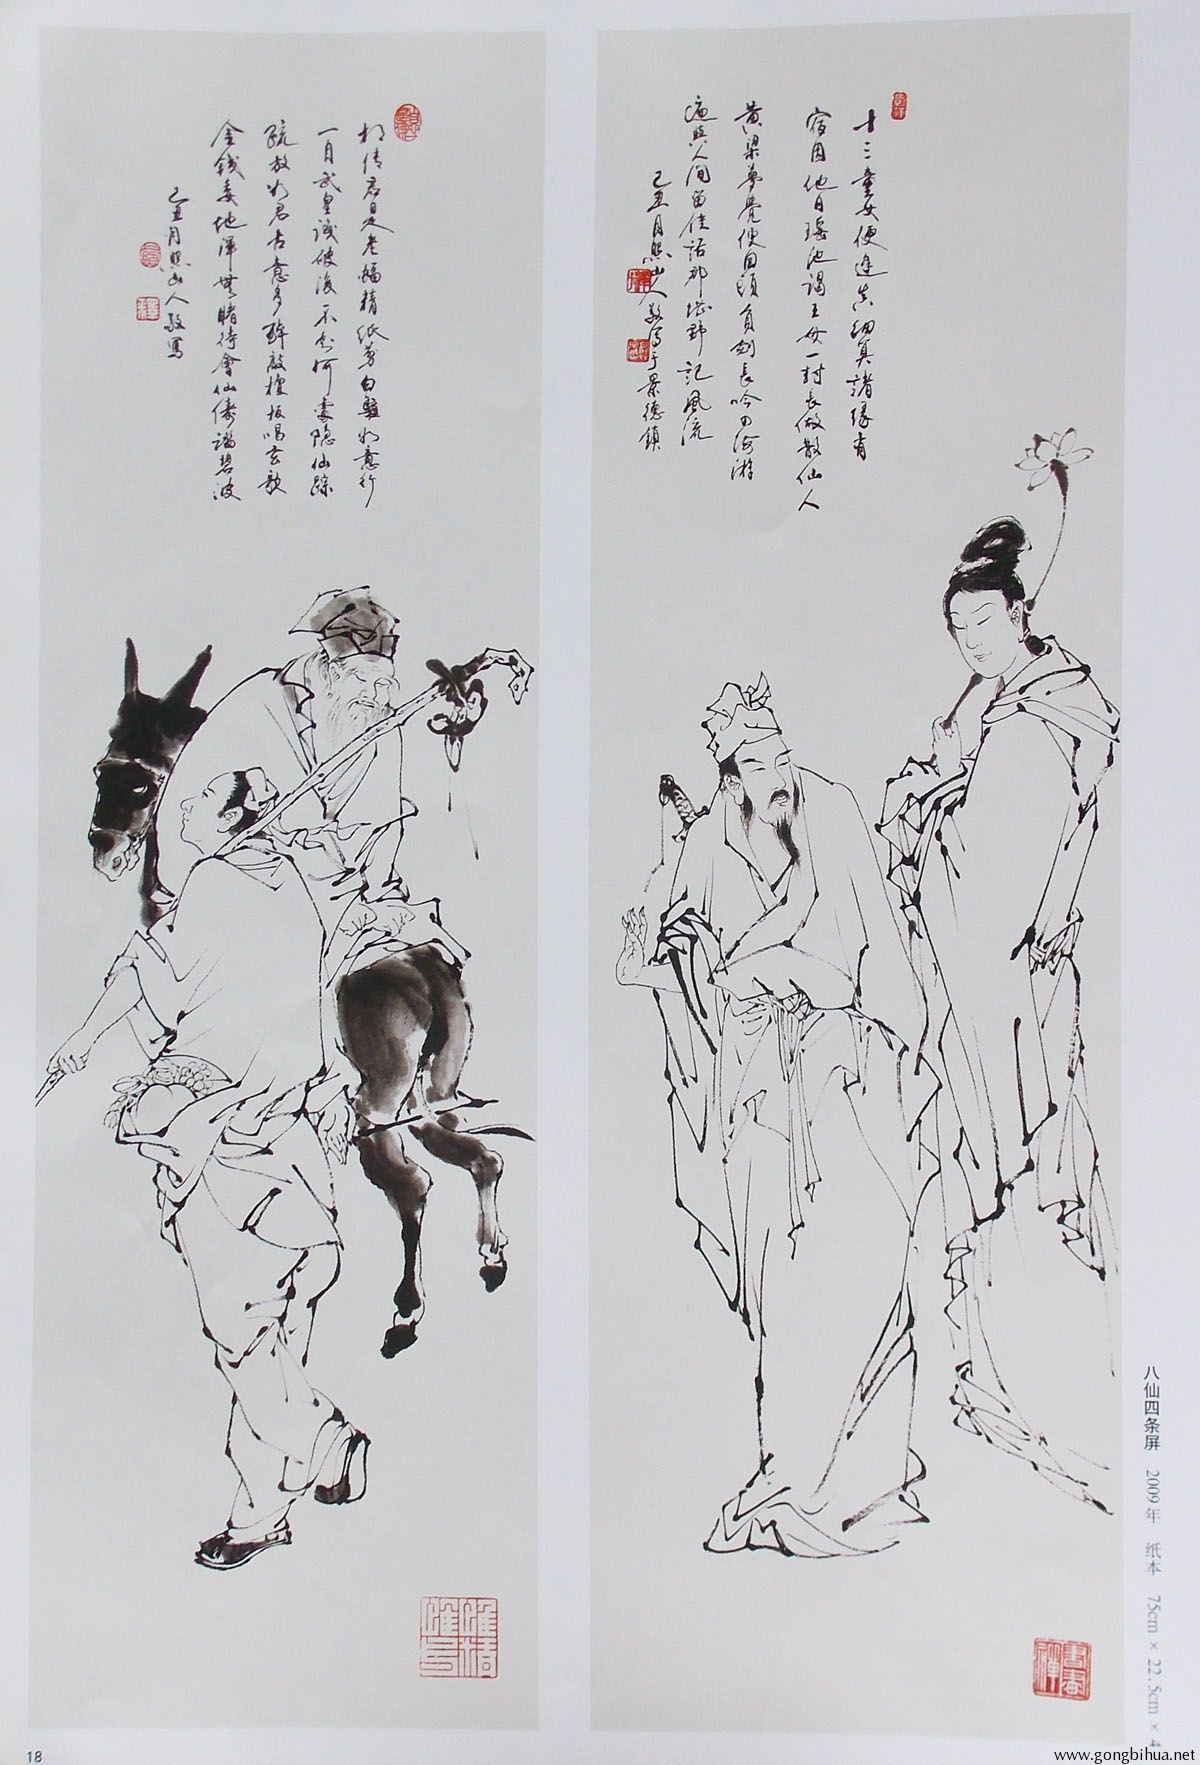 十三童女便逢真細算諸緣有
宿因他日瑶池谒王母一封長做散仙人
黄粱夢覺便回頭負劍長吟四海游
人间留佳話那堪野記風流
己丑月照山人敬写于景德鎮
書畫禪
相传君是老蝠精纸剪白驢如意行
一自武皇識破後不知何處隐仙踪
疏放如君古意多醉敲檀板唱玄歌
金錢委地渾無睹待會仙儔謁碧波
己丑月照山人敬寫
八仙四条屏 2009年 纸本 75cm × 22.5cm × 4
18
www.gongbihua.net